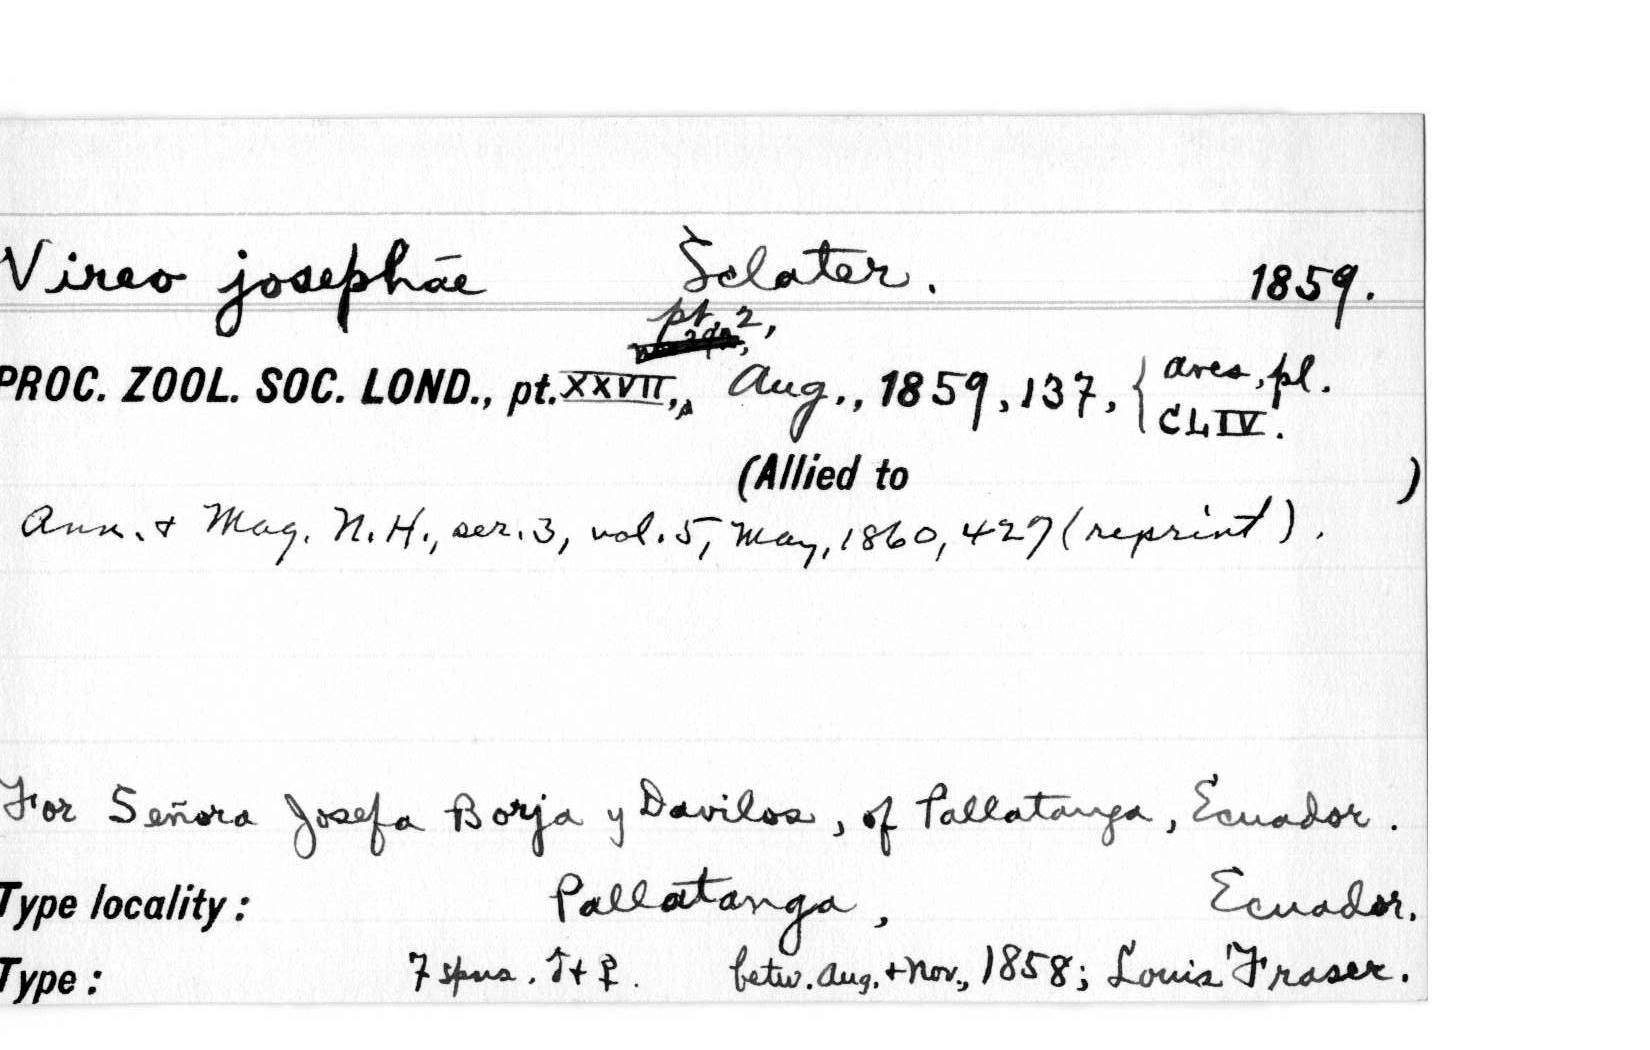 Vireo josephāe Sclater. 1859.
pt. 2,
PROC. ZOOL. SOC. LOND., pt. XXVII, Aug., 1859, 137, { aves, pl.
CLIV.
(Allied to )
Ann. & Mag. N.H., ser. 3, vol. 5, May, 1860, 427 (reprint).
For Señora Josefa Borja y Davilos, of Pallatanga, Ecuador.
Type locality: Pallatanga, Ecuador.
Type: 7 spms. ♂ + ♀. betw. Aug. + Nov., 1858; Louis Fraser.